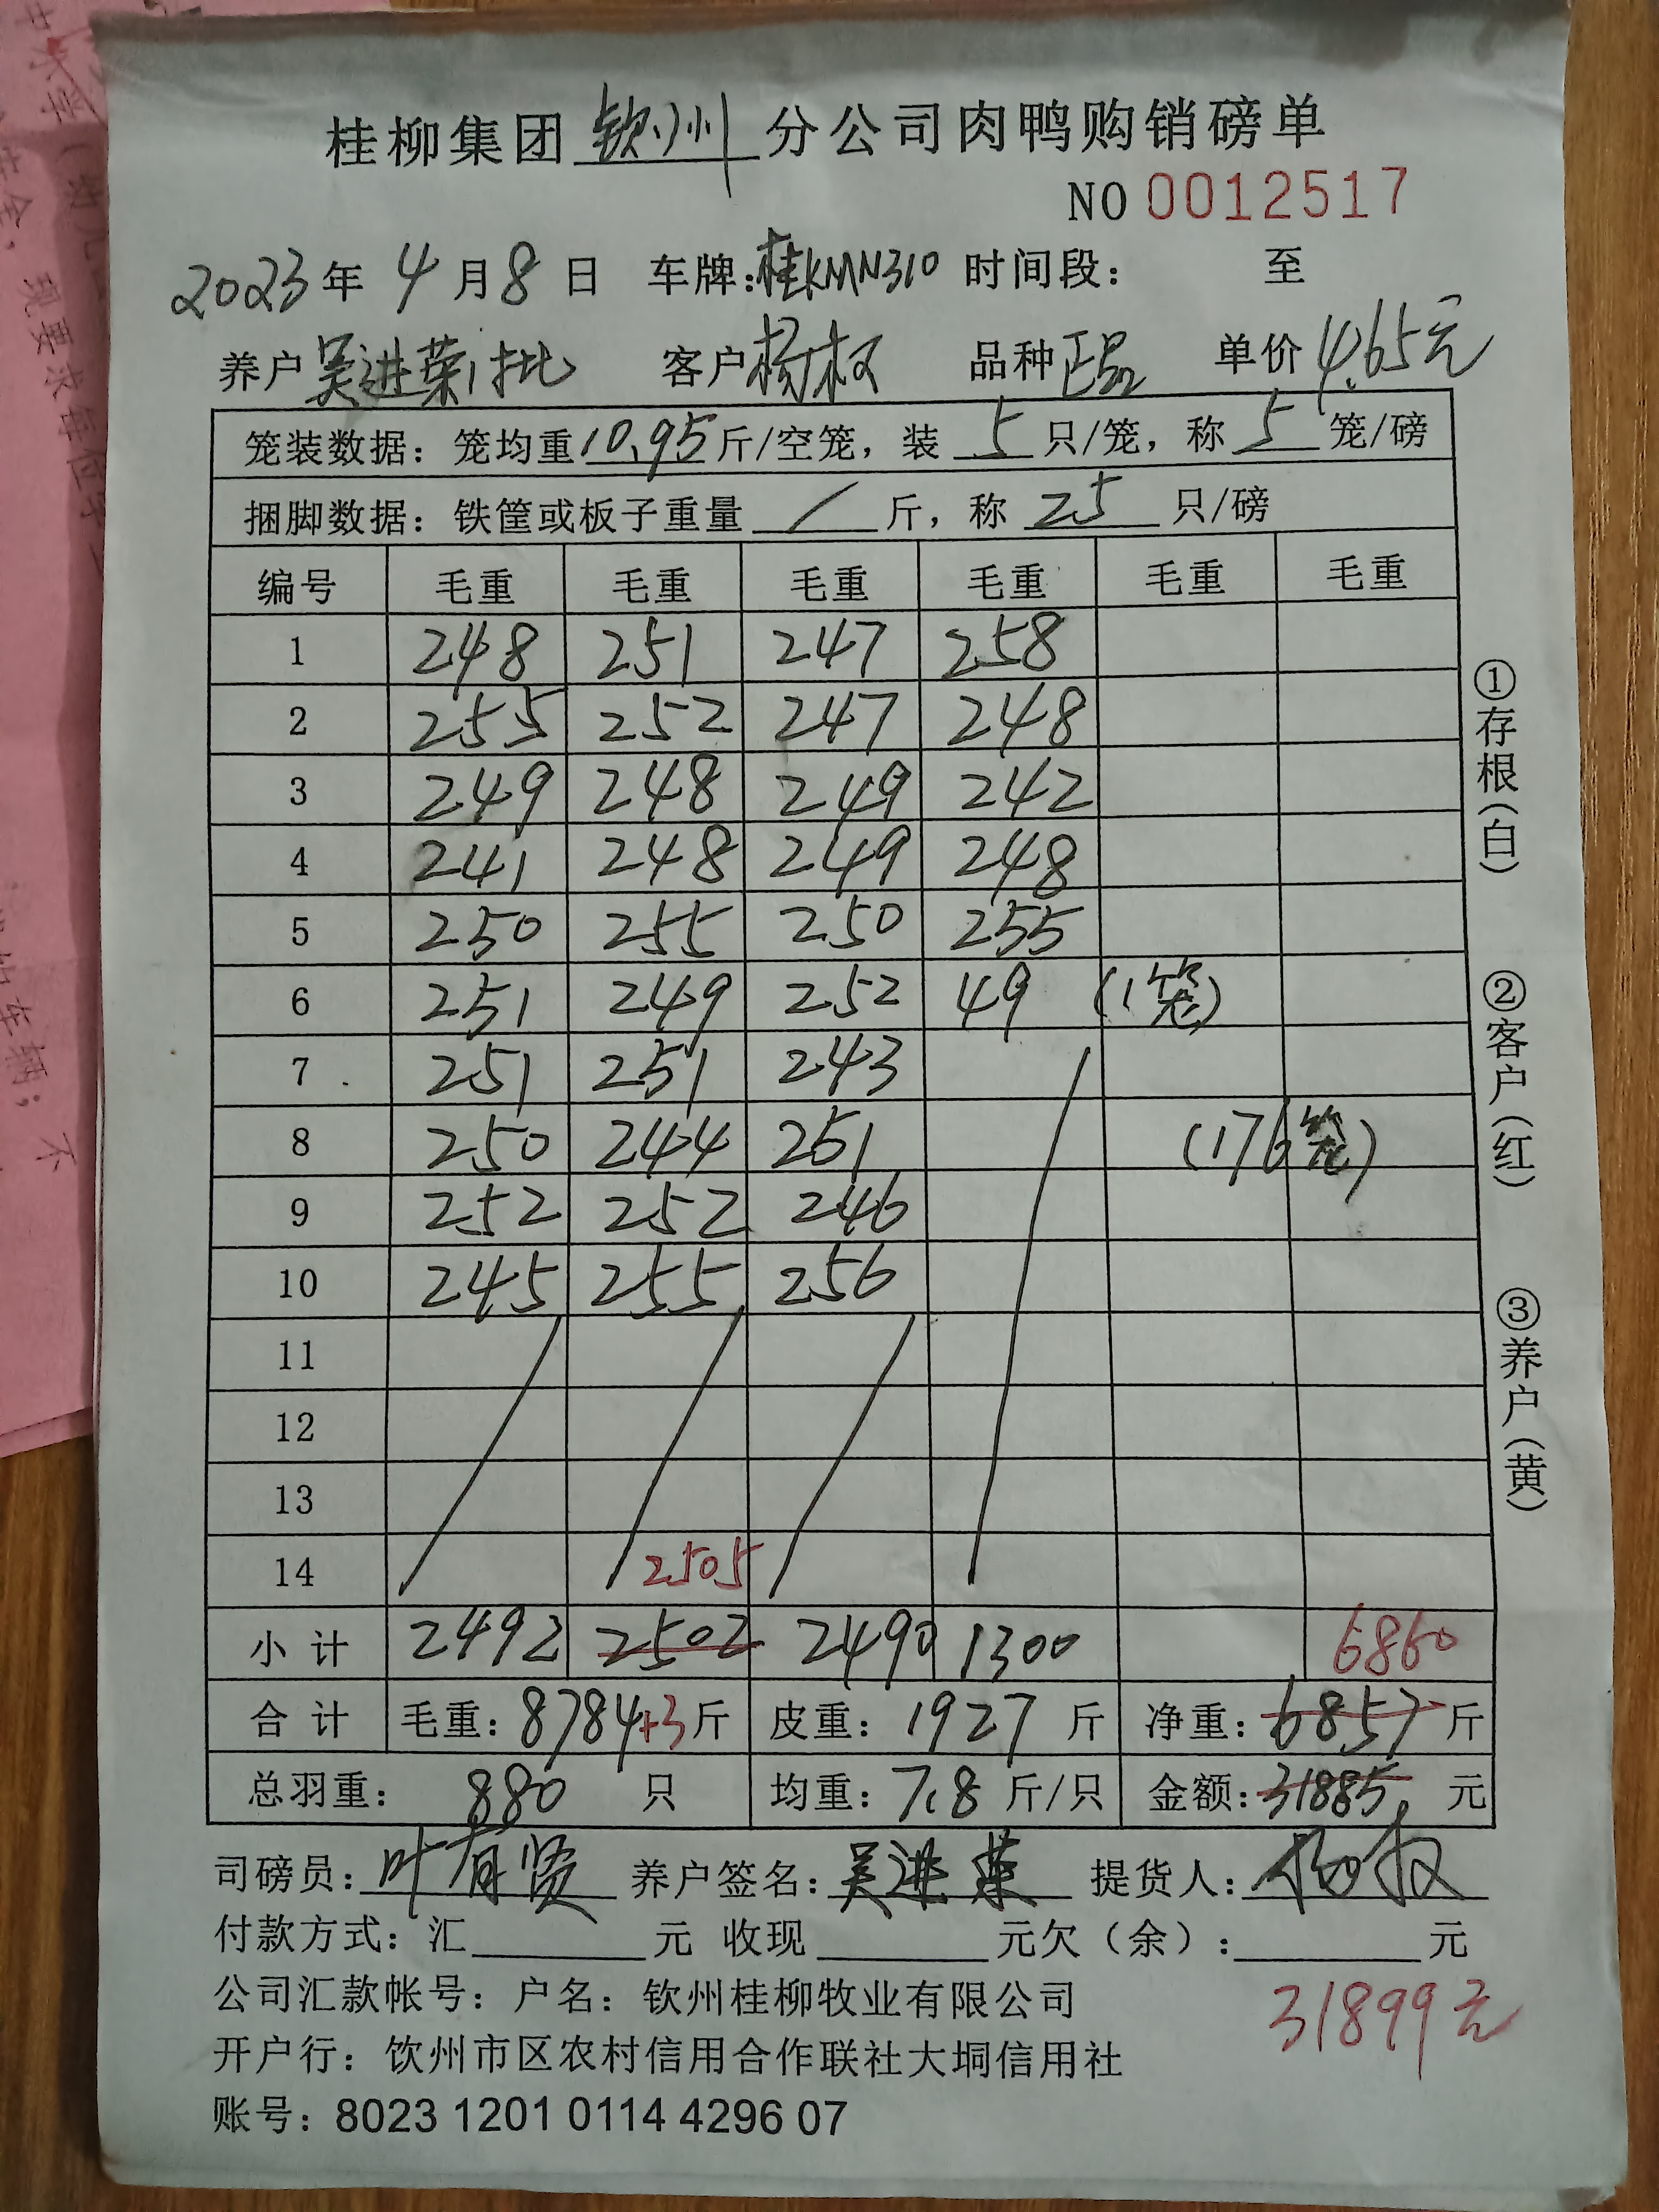 桂柳集团 钦州 分公司肉鸭购销磅单
NO 0012517
2023年 4月 8日 车牌:桂KMN310 时间段: 至
养户 吴进荣1批 客户 杨权 品种 正品 单价 4.65元
笼装数据: 笼均重10.95斤/空笼, 装 5 只/笼, 称 5 笼/磅
捆脚数据: 铁筐或板子重量 / 斤, 称 25 只/磅
编号 毛重 毛重 毛重 毛重 毛重 毛重
1 248 251 247 258
2 255 252 247 248
3 249 248 249 242
4 241 248 249 248
5 250 255 250 255
6 251 249 252 49 (1笼)
7 251 251 243
8 250 244 251 (176笼)
9 252 252 246
10 245 255 256
11
12
13
14 2505
小计 2492 2502 2490 1300 6860
合计 毛重: 8784+3斤 皮重: 1927 斤 净重: 6857斤
总羽重: 880 只 均重: 7.8 斤/只 金额: 31885 元
司磅员: 叶有贤 养户签名: 吴进荣 提货人: 杨权
付款方式: 汇 元 收现 元欠(余): 元
公司汇款帐号: 户名: 钦州桂柳牧业有限公司
31899元
开户行: 钦州市区农村信用合作联社大垌信用社
账号: 8023 1201 0114 4296 07
①存根(白)
②客户(红)
③养户(黄)